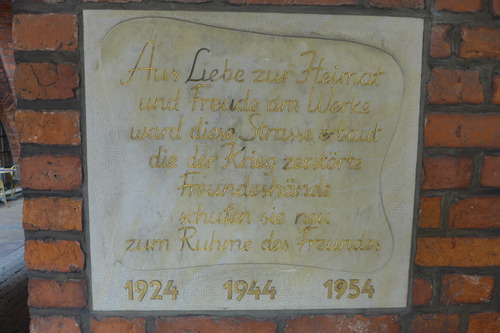 Aus Liebe zur Heimat
und Freude am Werke
ward diese Strasse erbaut
die der Krieg zerstörte
Freundeshände
schufen sie neu
zum Ruhme des Freundes
1924 1944 1954